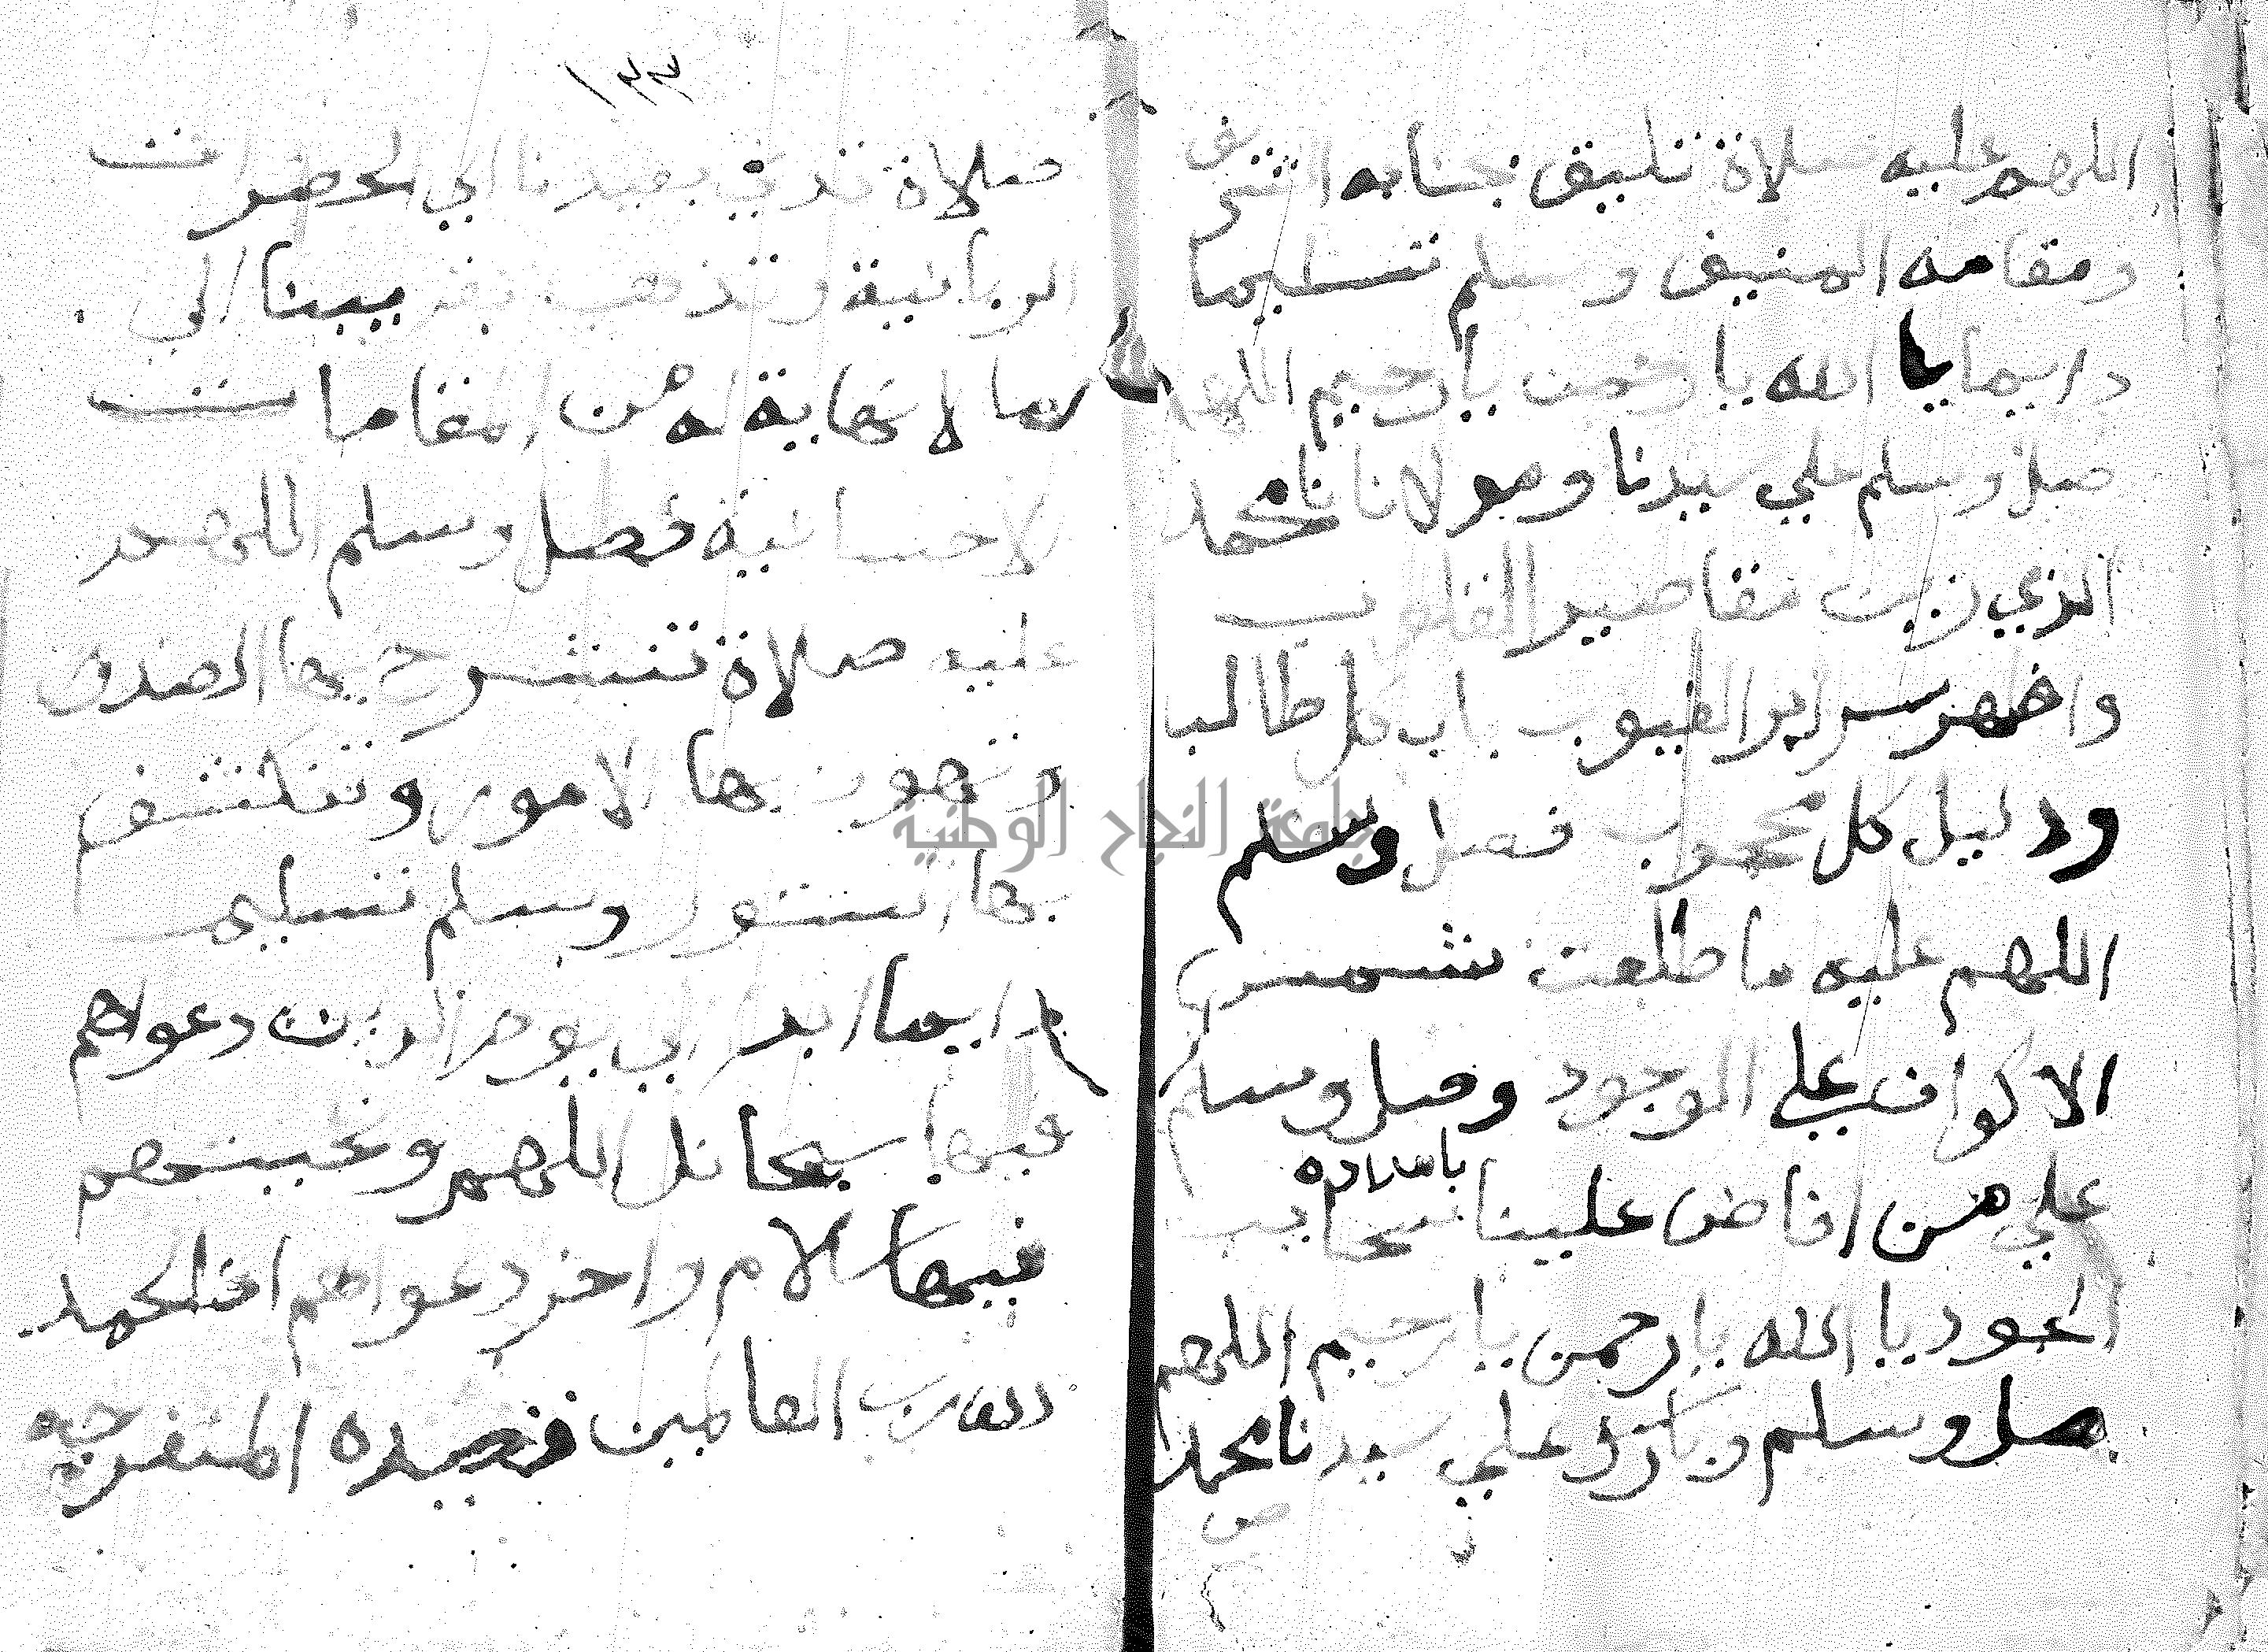 اللهم عليه صلاة تليق بجنابه الشريف
ومقامه المنيف وسلم تسليما
دايما يا الله يا رحمن يا رحيم اللهم
صل وسلم علي سيدنا ومولانا محمد
الذي زين مقاصير القلوب
واظهر سراير الغيوب باب كل طالب
ودليل كل محجوب فصل وسلم
اللهم عليه ما طلعت شمس
الاكوان علي الوجود وصل وسلم
علي من افاض علينا بامداده سحايب
الجود يا الله يا رحمن يا رحيم اللهم
صل وسلم وبارك علي سيدنا محمد
١٣٣
صلاة تدني بعيدنا الي الحضرات
الربانية وتذهب بقريبنا الي
ما لا نهاية له من المقامات
الاحسانية فصل وسلم اللهم
عليه صلاة تنشرح بها الصدور
وتهون بها الامور وتنكشف
بها الستور وسلم تسليما
دايما ابدا الي يوم الدين دعواهم
فيها سبحانك اللهم وتحيتهم
فيها سلام واخر دعواهم ان الحمد
لله رب العالمين قصيده المنفرجيه
جامعة النجاح الوطنية